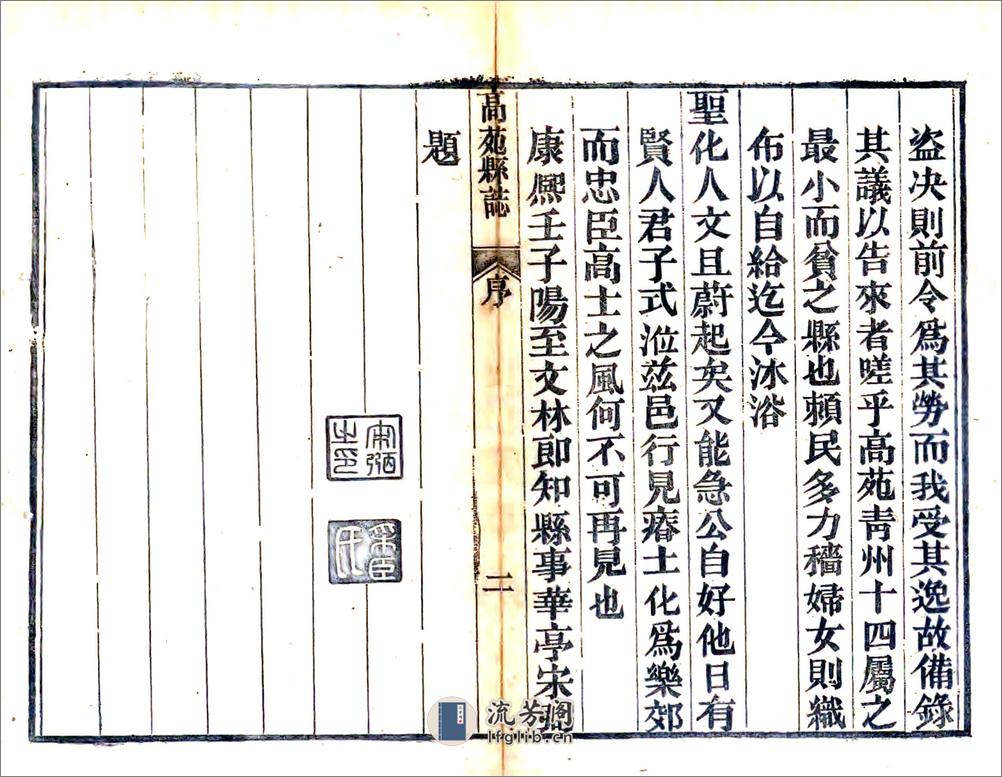 盜決則前令爲其勞而我受其逸故備錄
其議以告來者嗟乎高苑靑州十四屬之
最小而貧之縣也頼民多力穡婦女則織
布以自給迄今沐浴
聖化人文且蔚起矣又能急公自好他日有
賢人君子式涖兹邑行見瘠土化爲樂郊
而忠臣高士之風何不可再見也
康熈壬子陽至文林郎知縣事華亭宋弼
題
高苑縣誌
序
二
宋弼之印
流芳阁
lfglib.cn